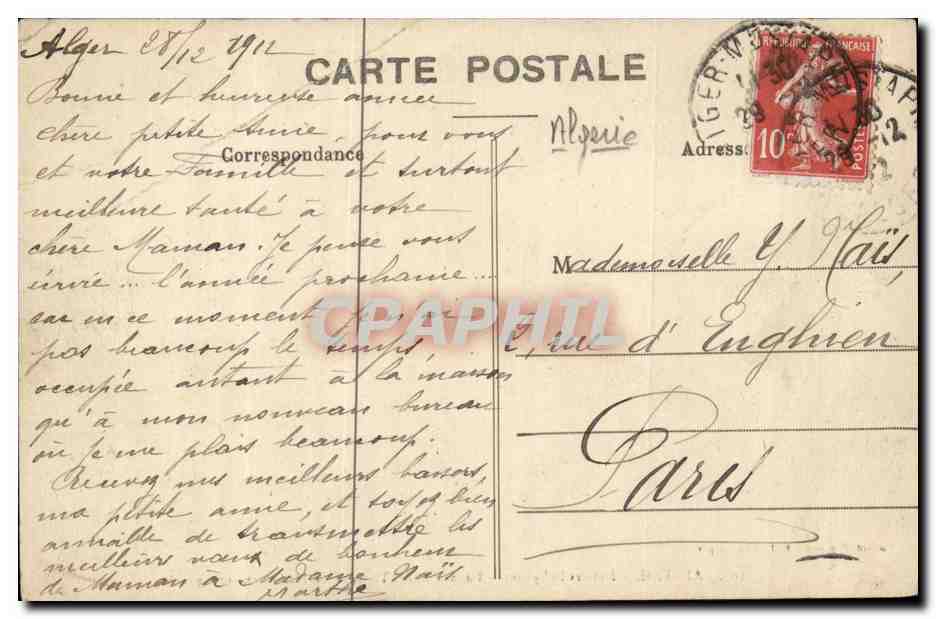 Alger 28/12 1912
CARTE POSTALE
Correspondance
Algerie
Adresse
REPUBLIQUE FRANÇAISE
10c
POSTES
Bonne et heureuse année
chère petite Amie, pour vous
et votre Famille et surtout
meilleure santé à votre
chère Maman. Je pense vous
écrire ... l'année prochaine ...
car en ce moment je n'ai
pas beaucoup le temps,
occupée autant à la maison
qu'à mon nouveau bureau
où je me plais beaucoup.
Recevez mes meilleurs baisers,
ma petite amie, et soyez bien
aimable de transmettre les
meilleurs vœux de bonheur
de Maman à Madame Naïs
Marthe
Mademoiselle Y. Naïs,
2, rue d'Enghien
Paris
CPAPHIL